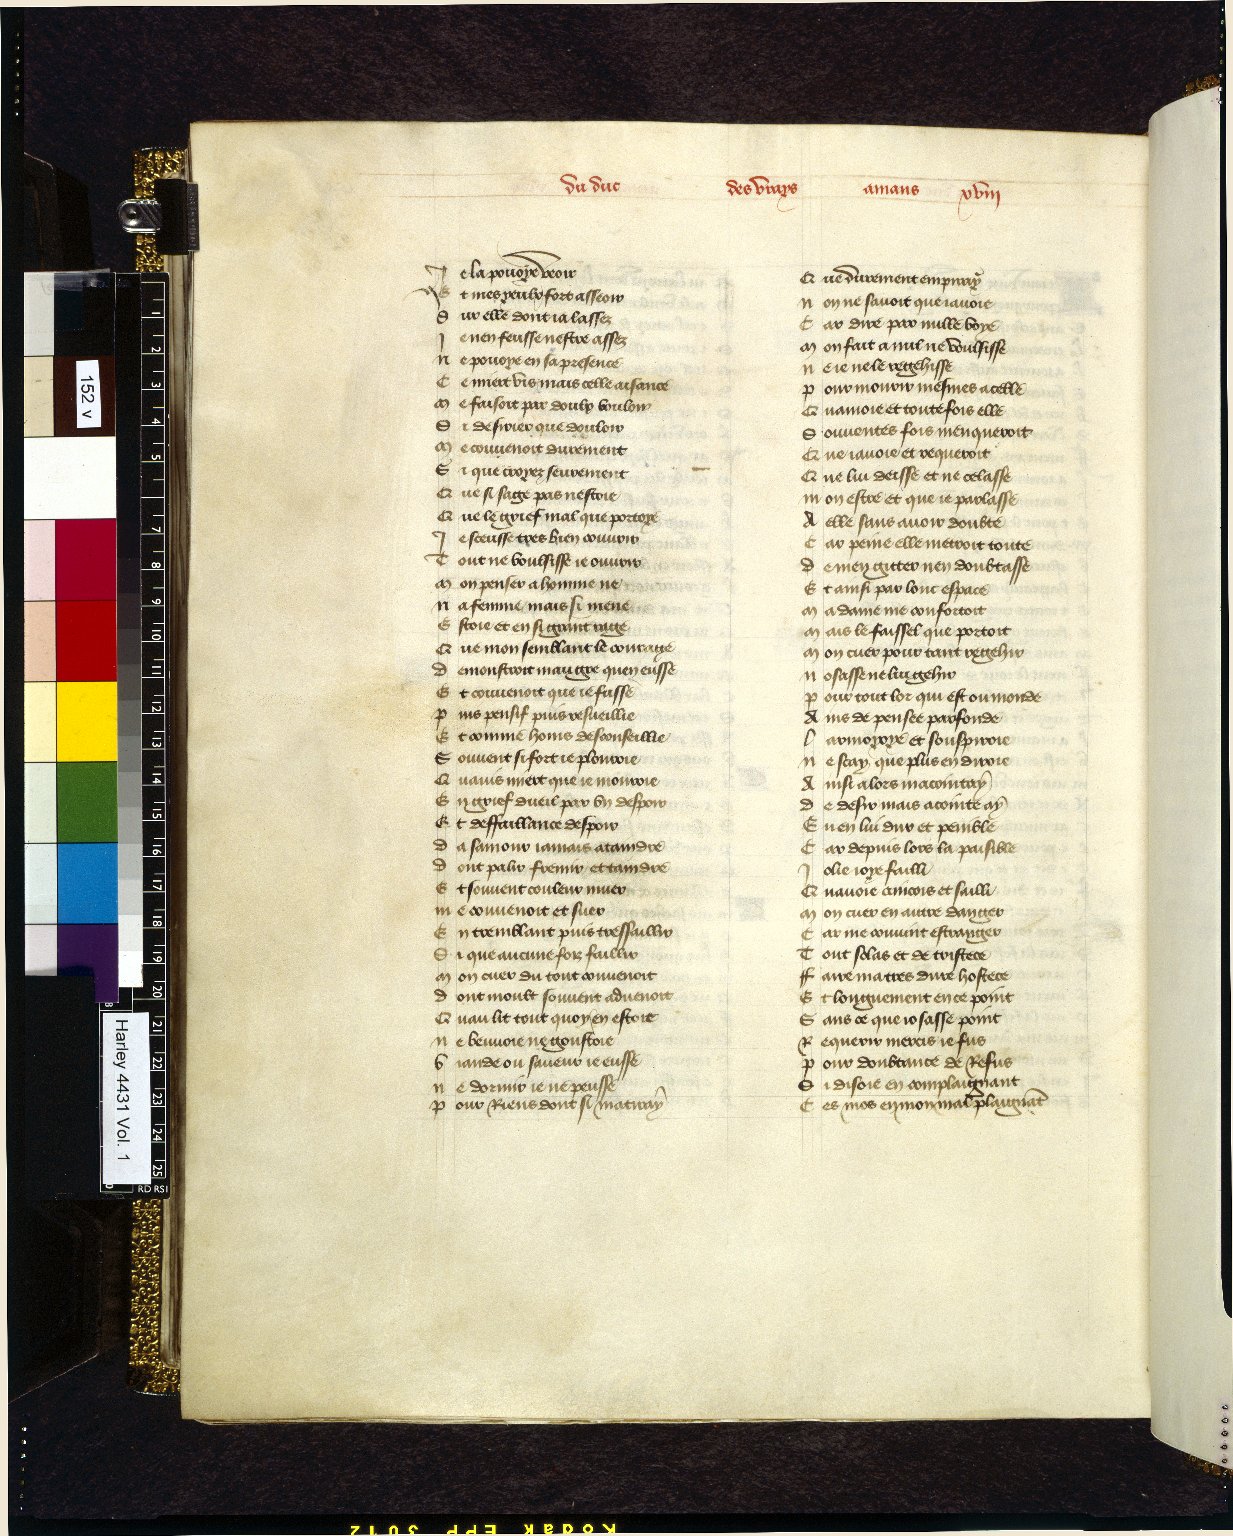 du duc des vrays amans xviii
Je la pouoye veoir
Et mes yeulx fort asseoir
Sur elle dont ia lassez
Je nen feusse nestre assez
Ne pouoye en sa presence
Ce miert vis mais celle aisance
Me faisoit par doulx vouloir
Si desirier que douloir
Me couuenoit durement
Si que croyez seurement
Que si sage pas nestoie
Que le grief mal que portoye
Je sceusse tres bien couurir
Tout ne voulsisse ie ouurir
Mon penser a homme ne
Na femme mais si mene
Estoie et en si grant rage
Que mon semblant le courage
Demonstroit maugre quen eusse
Et couuenoit que ie fusse
Puis pensif puis resueillie
Et comme homs desconseillie
Souuent si fort ie plouroie
Quauis miert que ie mouroie
En grief dueil par vn despoir
Et deffaillance despoir
Da samour iamais ataindre
Dont palir fremir et taindre
Et souuent couleur muer
Me couuenoit et suer
En tremblant puis tressaillir
Si que aucune foiz faillir
Mon cuer du tout conuenoit
Dont moult souuent aduenoit
Quau lit tout quoy en estoie
Ne beuuoie ne goustoie
Viande ou saueur ie eusse
Ne dormir ie ne peusse
Pour Riens dont si matiray
Que durement empiray
Non ne sauoit que iauoie
Car dire par nulle voye
Mon fait a nul ne voulsisse
Ne ie ne le regehisse
Pour mourir mesmes a celle
Quamoie et toutefois elle
Souuentes fois menqueroit
Que iauoie et requeroit
Que lui deisse et ne celasse
Mon estre et que ie parlasse
A elle sans auoir doubte
Car peine elle metroit toute
De men gitter nen doubtasse
Et ainsi par lonc espace
Ma dame me confortoit
Mais le faissel que portoit
Mon cuer pour tant regehir
Nosasse ne lui gehir
Pour tout lor qui est ou monde
Ains de pensee parfonde
Larmoyoye et souspiroie
Ne scay que plus en diroie
Ainsi alors macointay
De desir mais acointe ay
Eu en lui dur et penible
Car depuis lors la paisible
Jolie ioye failli
Quauoie aincois et sailli
Mon cuer en autre danger
Car me conuint estranger
Tout solas et de tristece
Faire ma tres dure hostece
Et longuement en ce point
Sans ce que iosasse point
Requerir mercis ie fus
Pour doubtance de Refus
Si disoie en complaignant
Ces mos en mon mal plaignant
152 v
Harley 4431 Vol. 1
1
2
3
4
5
7
8
9
10
11
12
13
14
15
16
17
18
19
20
21
22
23
24
25
RD RSI
Kodak EPP 3012